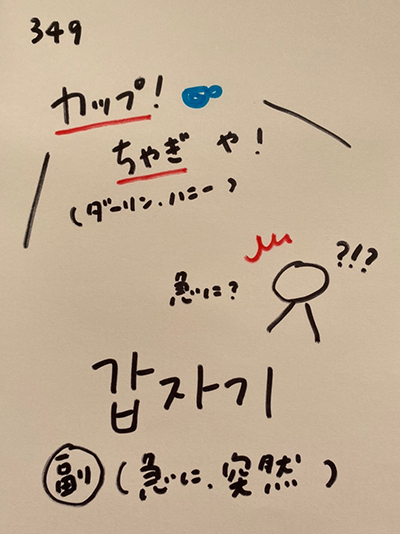 349
カップ!
ちゃぎ や!
(ダーリン、ハニー)
急に? ?!?
갑자기
副 (急に、突然)